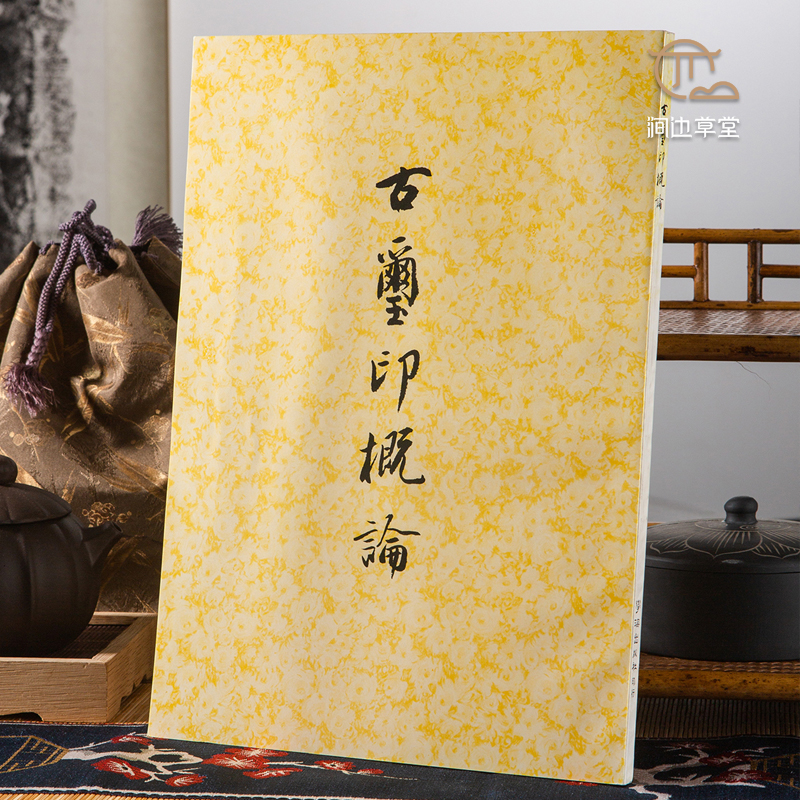 古璽印概論
涧边草堂
古璽印概論